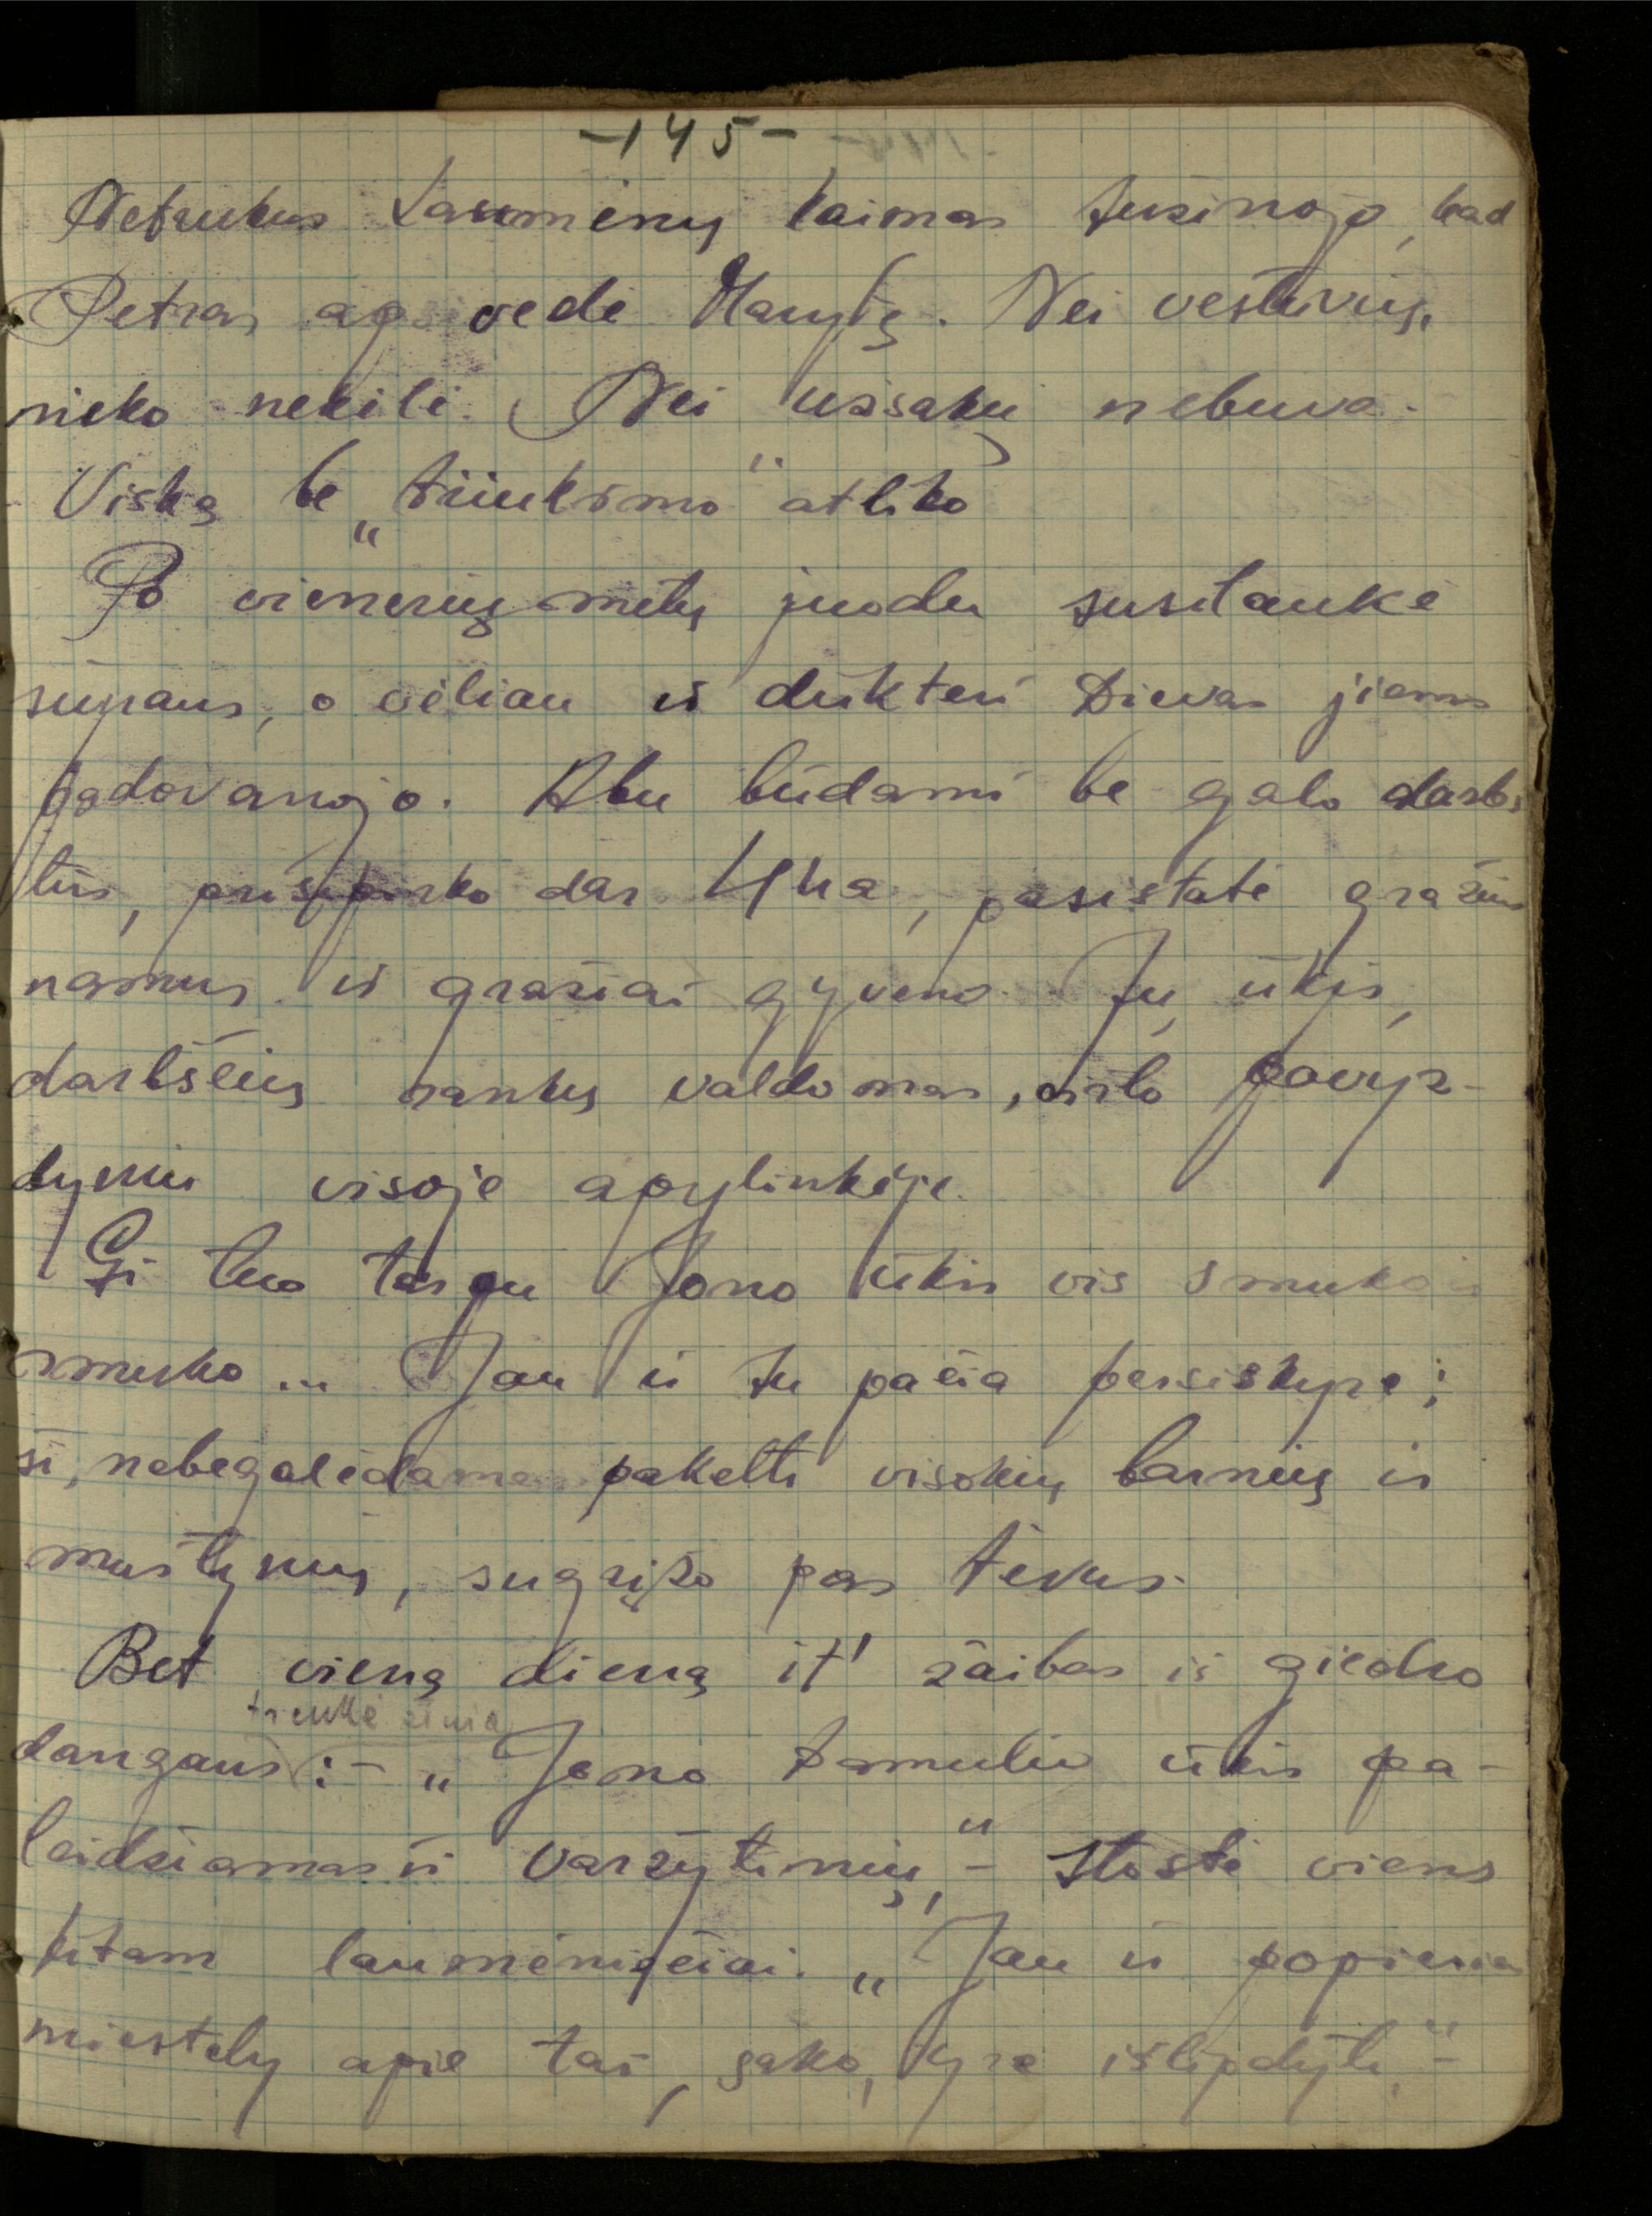 -145-
Netrukus Laumėnų kaimas sužinojo, kad
Petras apsivedė Marytę. Nei vestuvių,
nieko nekėlė. Nei užsakų nebuvo.
Viską be „triukšmo" atliko
Po vienerių metų juodu susilaukė
sūnaus, o vėliau ir dukterį Dievas jiems
padovanojo. Abu būdami be galo darbš
tūs, prisipirko dar 4 ha, pasistatė gražius
namus ir gražiai gyveno. Jų ūkis,
darbščių rankų valdomas, virto pavyz-
dyniu visoje apylinkėje.
Gi tuo tarpu Jono ūkis vis smuko ir
smuko... Jau ir su pačia persiskyrė;
ši, nebegalėdama pakelti visokių barnių ir
muštynių, sugrįžo pas tėvus.
Bet vieną dieną it' žaibas iš giedro
trenkė žinia
dangaus :- „Jono Ramulio ūkis pa-
leidžiamas iš varžytinių," - stostė viens
kitam laumėniečiai. „Jau ir popierius
miestely apie tai, sako, yra išlipdyti," -